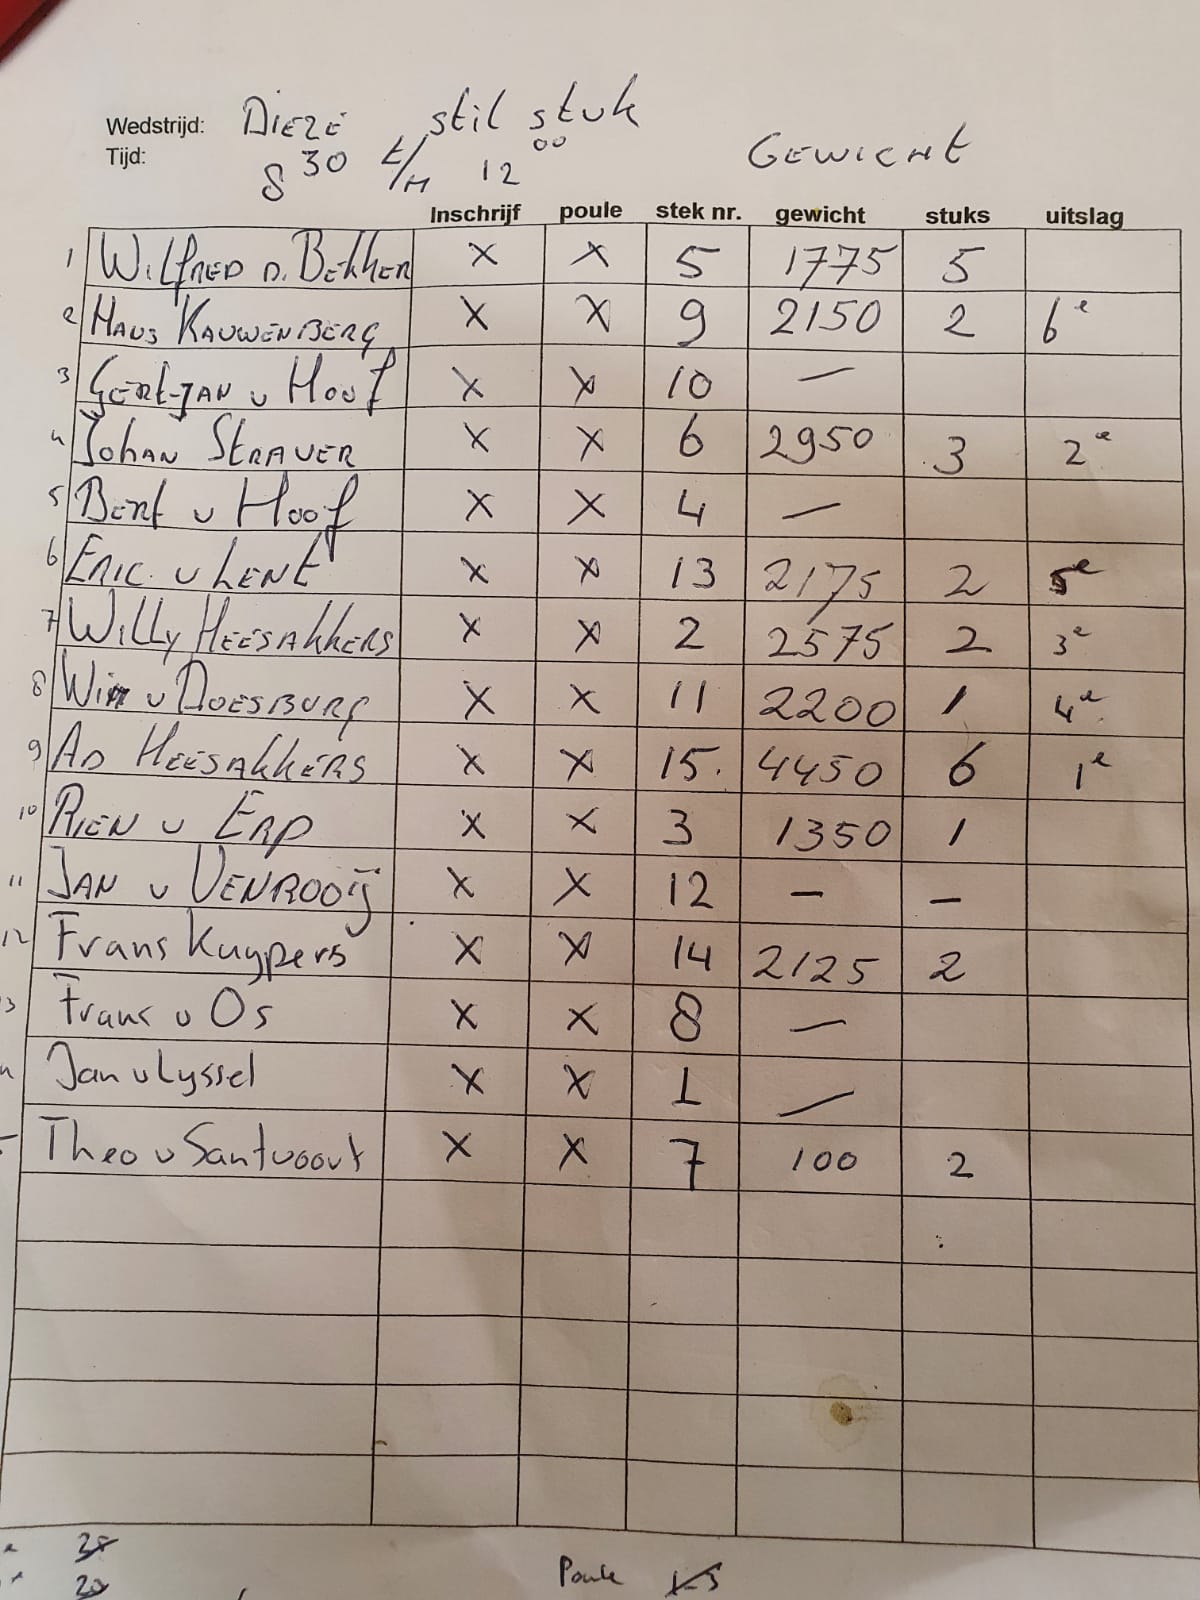 Wedstrijd: Dieze stil stuk
Tijd: 8 30 t/m 12 00 Gewicht
Inschrijf poule stek nr. gewicht stuks uitslag
1 Wilfred d. Bekker X X 5 1775 5
2 Hans Kauwenberg X X 9 2150 2 6e
3 Gert-Jan v Hoof X X 10 —
4 Johan Straver X X 6 2950 3 2e
5 Bert v Hoof X X 4 —
6 Eric v Lent X X 13 2175 2 5e
7 Willy Heesakkers X X 2 2575 2 3e
8 Wim v Doesburg X X 11 2200 1 4e
9 Ad Heesakkers X X 15. 4450 6 1e
10 Rien v Erp X X 3 1350 1
11 Jan v Venrooij X X 12 — —
12 Frans Kuypers X X 14 2125 2
3 Frans v Os X X 8 —
Jan v Lyssel X X 1 —
Theo v Santvoort X X 7 100 2
Poule